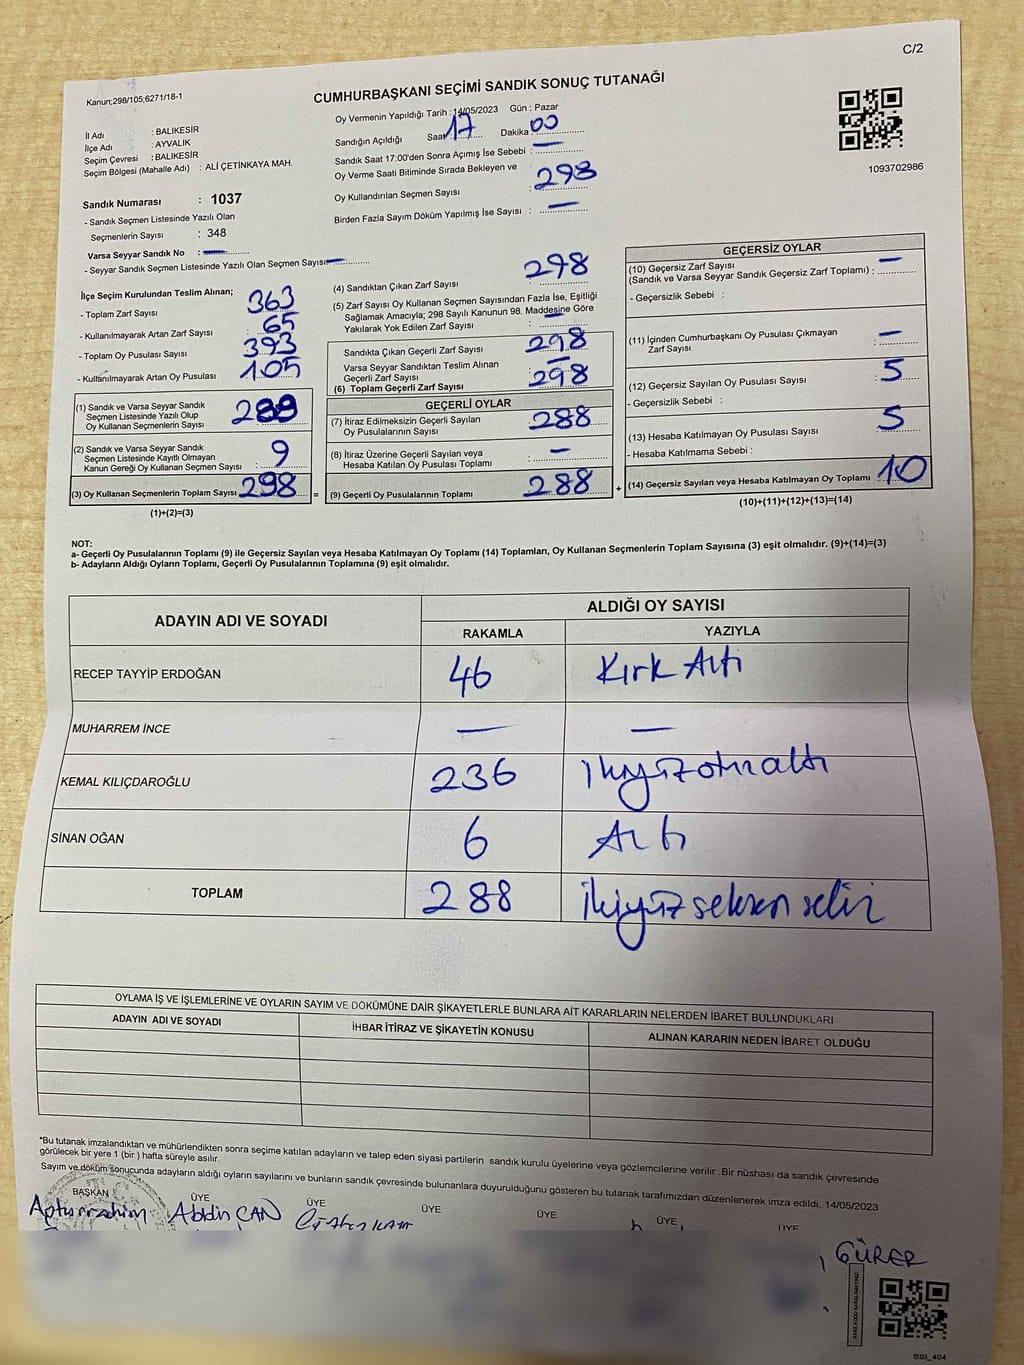 C/2
Kanun;298/105;6271/18-1
CUMHURBAŞKANI SEÇİMİ SANDIK SONUÇ TUTANAĞI
Oy Vermenin Yapıldığı Tarih : 14/05/2023 Gün : Pazar
İl Adı : BALIKESİR
İlçe Adı : AYVALIK
Seçim Çevresi : BALIKESİR
Seçim Bölgesi (Mahalle Adı) : ALİ ÇETİNKAYA MAH.
Sandığın Açıldığı Saat 17 Dakika 00
Sandık Saat 17:00'den Sonra Açımış İse Sebebi : —
Oy Verme Saati Bitiminde Sırada Bekleyen ve
Oy Kullandırılan Seçmen Sayısı : 298
Birden Fazla Sayım Döküm Yapılmış İse Sayısı : —
1093702986
Sandık Numarası : 1037
- Sandık Seçmen Listesinde Yazılı Olan
Seçmenlerin Sayısı : 348
Varsa Seyyar Sandık No : —
- Seyyar Sandık Seçmen Listesinde Yazılı Olan Seçmen Sayısı: —
İlçe Seçim Kurulundan Teslim Alınan;
- Toplam Zarf Sayısı : 363
- Kullanılmayarak Artan Zarf Sayısı : 65
- Toplam Oy Pusulası Sayısı : 393
- Kullanılmayarak Artan Oy Pusulası : 105
(1) Sandık ve Varsa Seyyar Sandık
Seçmen Listesinde Yazılı Olup
Oy Kullanan Seçmenlerin Sayısı : 289
(2) Sandık ve Varsa Seyyar Sandık
Seçmen Listesinde Kayıtlı Olmayan
Kanun Gereği Oy Kullanan Seçmen Sayısı : 9
(3) Oy Kullanan Seçmenlerin Toplam Sayısı : 298 =
(1)+(2)=(3)
(4) Sandıktan Çıkan Zarf Sayısı : 298
(5) Zarf Sayısı Oy Kullanan Seçmen Sayısından Fazla İse, Eşitliği
Sağlamak Amacıyla; 298 Sayılı Kanunun 98. Maddesine Göre
Yakılarak Yok Edilen Zarf Sayısı : —
Sandıkta Çıkan Geçerli Zarf Sayısı : 298
Varsa Seyyar Sandıktan Teslim Alınan
Geçerli Zarf Sayısı : —
(6) Toplam Geçerli Zarf Sayısı : 298
GEÇERLİ OYLAR
(7) İtiraz Edilmeksizin Geçerli Sayılan
Oy Pusulalarının Sayısı : 288
(8) İtiraz Üzerine Geçerli Sayılan veya
Hesaba Katılan Oy Pusulası Toplamı : —
(9) Geçerli Oy Pusulalarının Toplamı : 288 +
GEÇERSİZ OYLAR
(10) Geçersiz Zarf Sayısı
(Sandık ve Varsa Seyyar Sandık Geçersiz Zarf Toplamı) : —
- Geçersizlik Sebebi :
(11) İçinden Cumhurbaşkanı Oy Pusulası Çıkmayan
Zarf Sayısı : —
(12) Geçersiz Sayılan Oy Pusulası Sayısı : 5
- Geçersizlik Sebebi :
(13) Hesaba Katılmayan Oy Pusulası Sayısı : 5
- Hesaba Katılmama Sebebi :
(14) Geçersiz Sayılan veya Hesaba Katılmayan Oy Toplamı : 10
(10)+(11)+(12)+(13)=(14)
NOT:
a- Geçerli Oy Pusulalarının Toplamı (9) ile Geçersiz Sayılan veya Hesaba Katılmayan Oy Toplamı (14) Toplamları, Oy Kullanan Seçmenlerin Toplam Sayısına (3) eşit olmalıdır. (9)+(14)=(3)
b- Adayların Aldığı Oyların Toplamı, Geçerli Oy Pusulalarının Toplamına (9) eşit olmalıdır.
ADAYIN ADI VE SOYADI ALDIĞI OY SAYISI
RAKAMLA YAZIYLA
RECEP TAYYİP ERDOĞAN 46 Kırk Altı
MUHARREM İNCE — —
KEMAL KILIÇDAROĞLU 236 ikiyüzotuzaltı
SİNAN OĞAN 6 Altı
TOPLAM 288 ikiyüz seksen sekiz
OYLAMA İŞ VE İŞLEMLERİNE VE OYLARIN SAYIM VE DÖKÜMÜNE DAİR ŞİKAYETLERLE BUNLARA AİT KARARLARIN NELERDEN İBARET BULUNDUKLARI
ADAYIN ADI VE SOYADI İHBAR İTİRAZ VE ŞİKAYETİN KONUSU ALINAN KARARIN NEDEN İBARET OLDUĞU
*Bu tutanak imzalandıktan ve mühürlendikten sonra seçime katılan adayların ve talep eden siyasi partilerin sandık kurulu üyelerine veya gözlemcilerine verilir .Bir nüshası da sandık çevresinde
görülecek bir yere 1 (bir ) hafta süreyle asılır.
Sayım ve döküm sonucunda adayların aldığı oyların sayılarını ve bunların sandık çevresinde bulunanlara duyurulduğunu gösteren bu tutanak tarafımızdan düzenlenerek imza edildi. 14/05/2023
BAŞKAN ÜYE ÜYE ÜYE ÜYE ÜYE ÜYE
Abidin CAN
GÜRER
SSI_404